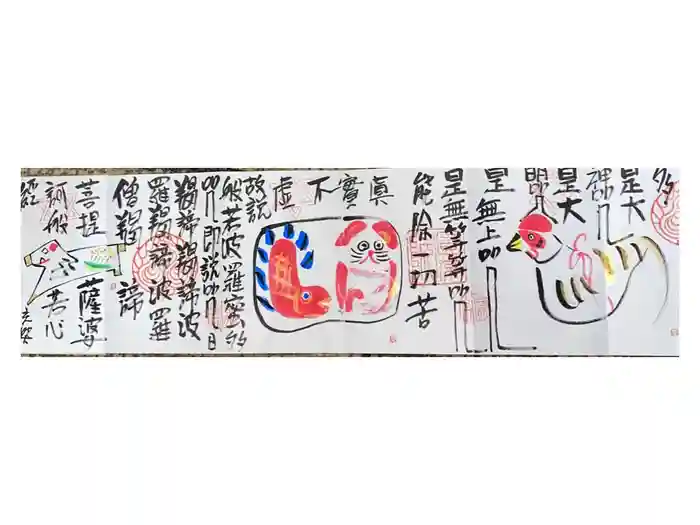 多
是大
神咒
是大
明咒
是無上咒
是無等等咒
能除一切苦
真
實
不
虛
故説
般若波羅蜜多
咒即説咒曰
羯諦羯諦波
羅羯諦波羅
僧羯諦
菩提薩婆
訶般若心
經